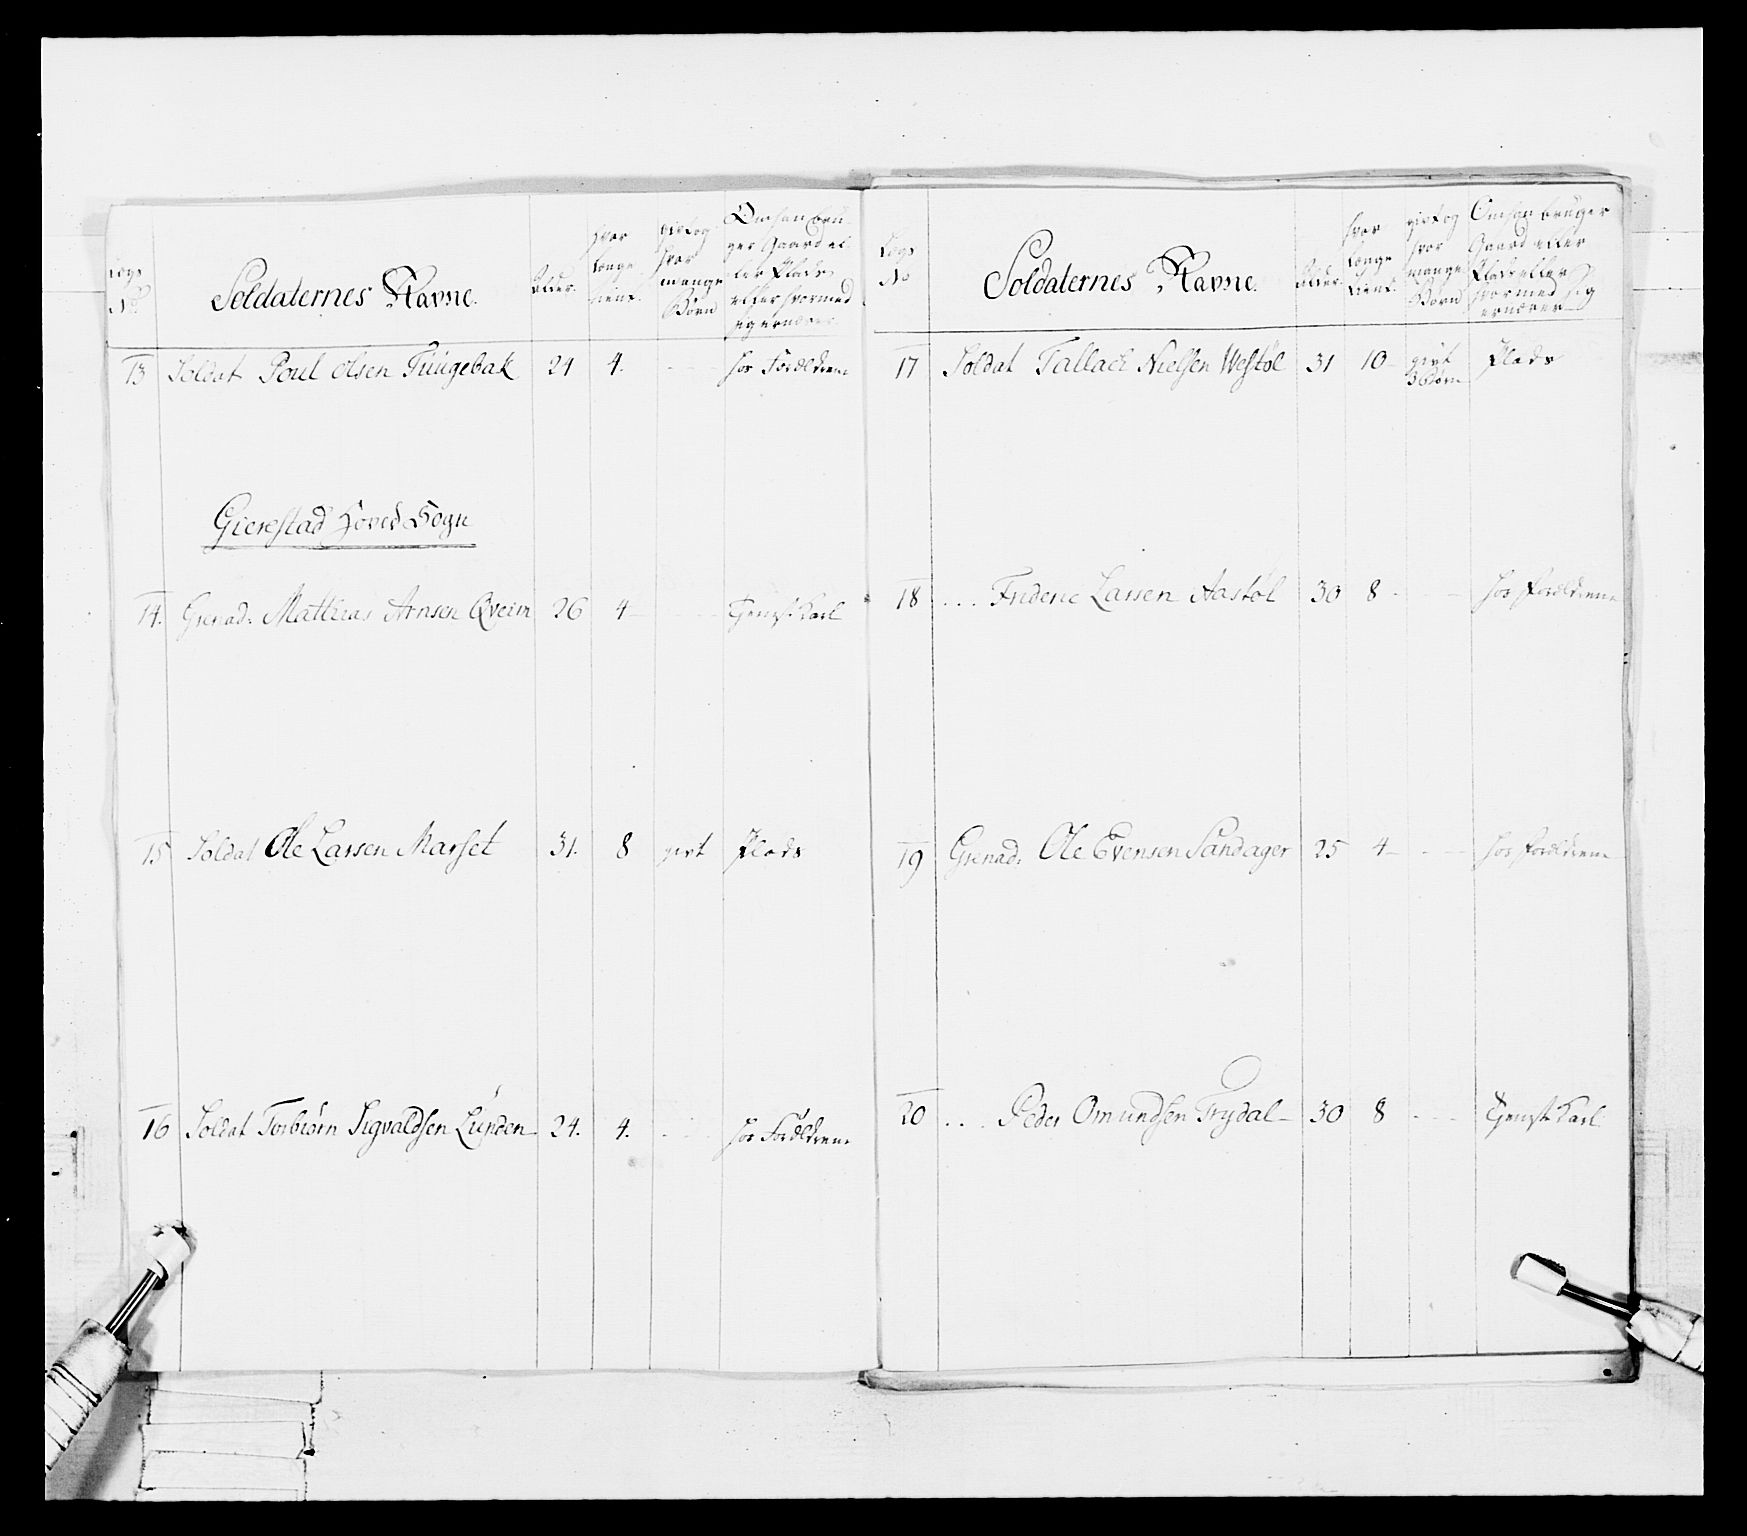 Lægs No
Soldaternes Navne.
Alder.
hvor længe tient.
givt og hvor mange Børn
Om han bruger Gaard eller Plads eller hvormed sig ernærer
13 Soldat Poul Olsen Tuugebak 24 4. - - hos Forældrene
Gierestad Hoved Sogn
14. Grenad. Matthias Arnsen Qveim 26 4 - - Tjenste Karl
15 Soldat Ole Larsen Marset 31. 8 givt Plads
16 Soldat Torbiørn Sigvaldsen Lunden 24. 4. - - hos Forældrene
Lægs No
Soldaternes Navne.
Alder
hvor længe tient.
givt og hvor mange Børn
Om han bruger Gaard eller Plads eller hvormed sig ernærer
17 Soldat Tallach Nielsen Westøl 31 10 givt 3 Børn Plads
18 ... Frideric Larsen Aastøl 30 8 - - hos Forældrene
19 Grenad. Ole Evensen Sandager 25 4 - - hos Forældrene
20 ... Peder Omundsen Trydal 30 8 - - Tjenste Karl